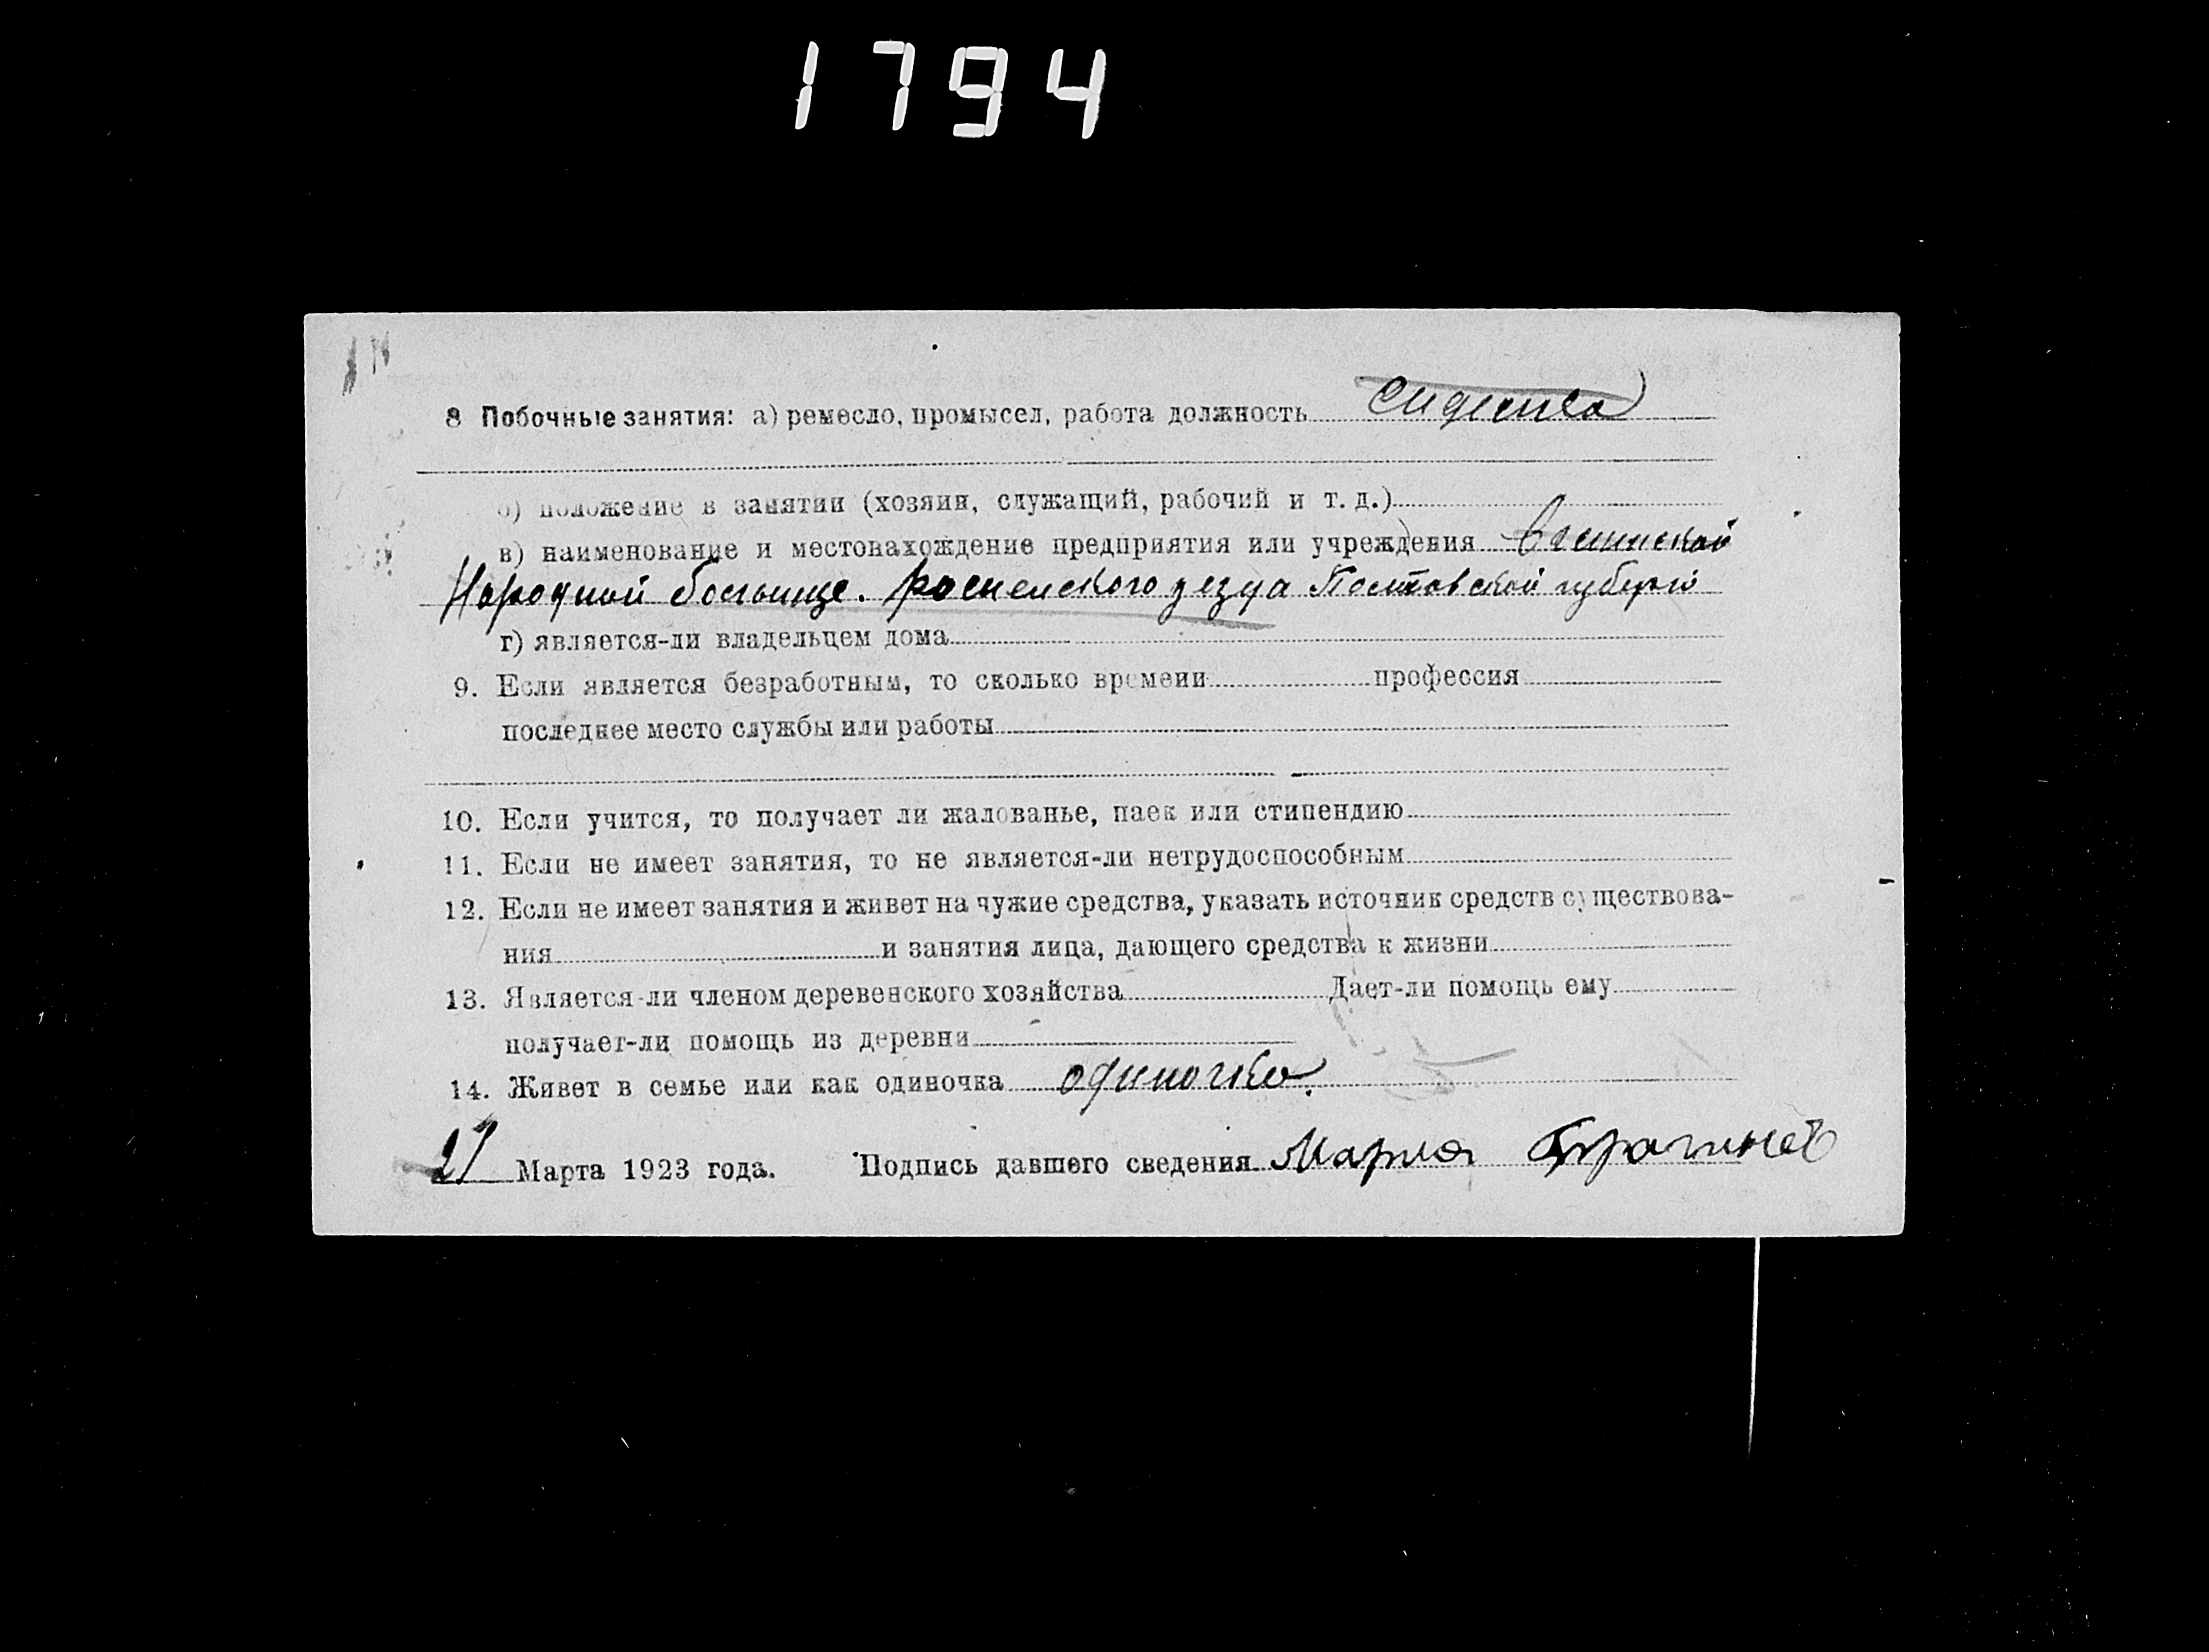 1794
8 Побочные занятия: а) ремесло, промысел, работа должность сиделка
б) положение в занятии (хозяин, служащий, рабочий и т. д.)
в) наименование и местонахождение предприятия или учреждения в
Народной больнице. уезда Полтавской губерни
г) является-ли владельцем дома
9. Если является безработным, то сколько времени профессия
последнее место службы или работы
10. Если учится, то получает ли жалованье, паек или стипендию
11. Если не имеет занятия, то не является-ли нетрудоспособным
12. Если не имеет занятия и живет на чужие средства, указать источник средств существова-
ния и занятия лица, дающего средства к жизни
13. Является-ли членом деревенского хозяйства Дает-ли помощь ему
получает-ли помощь из деревни
14. Живет в семье или как одиночка одиночка.
27 Марта 1923 года. Подпись давшего сведения Мария